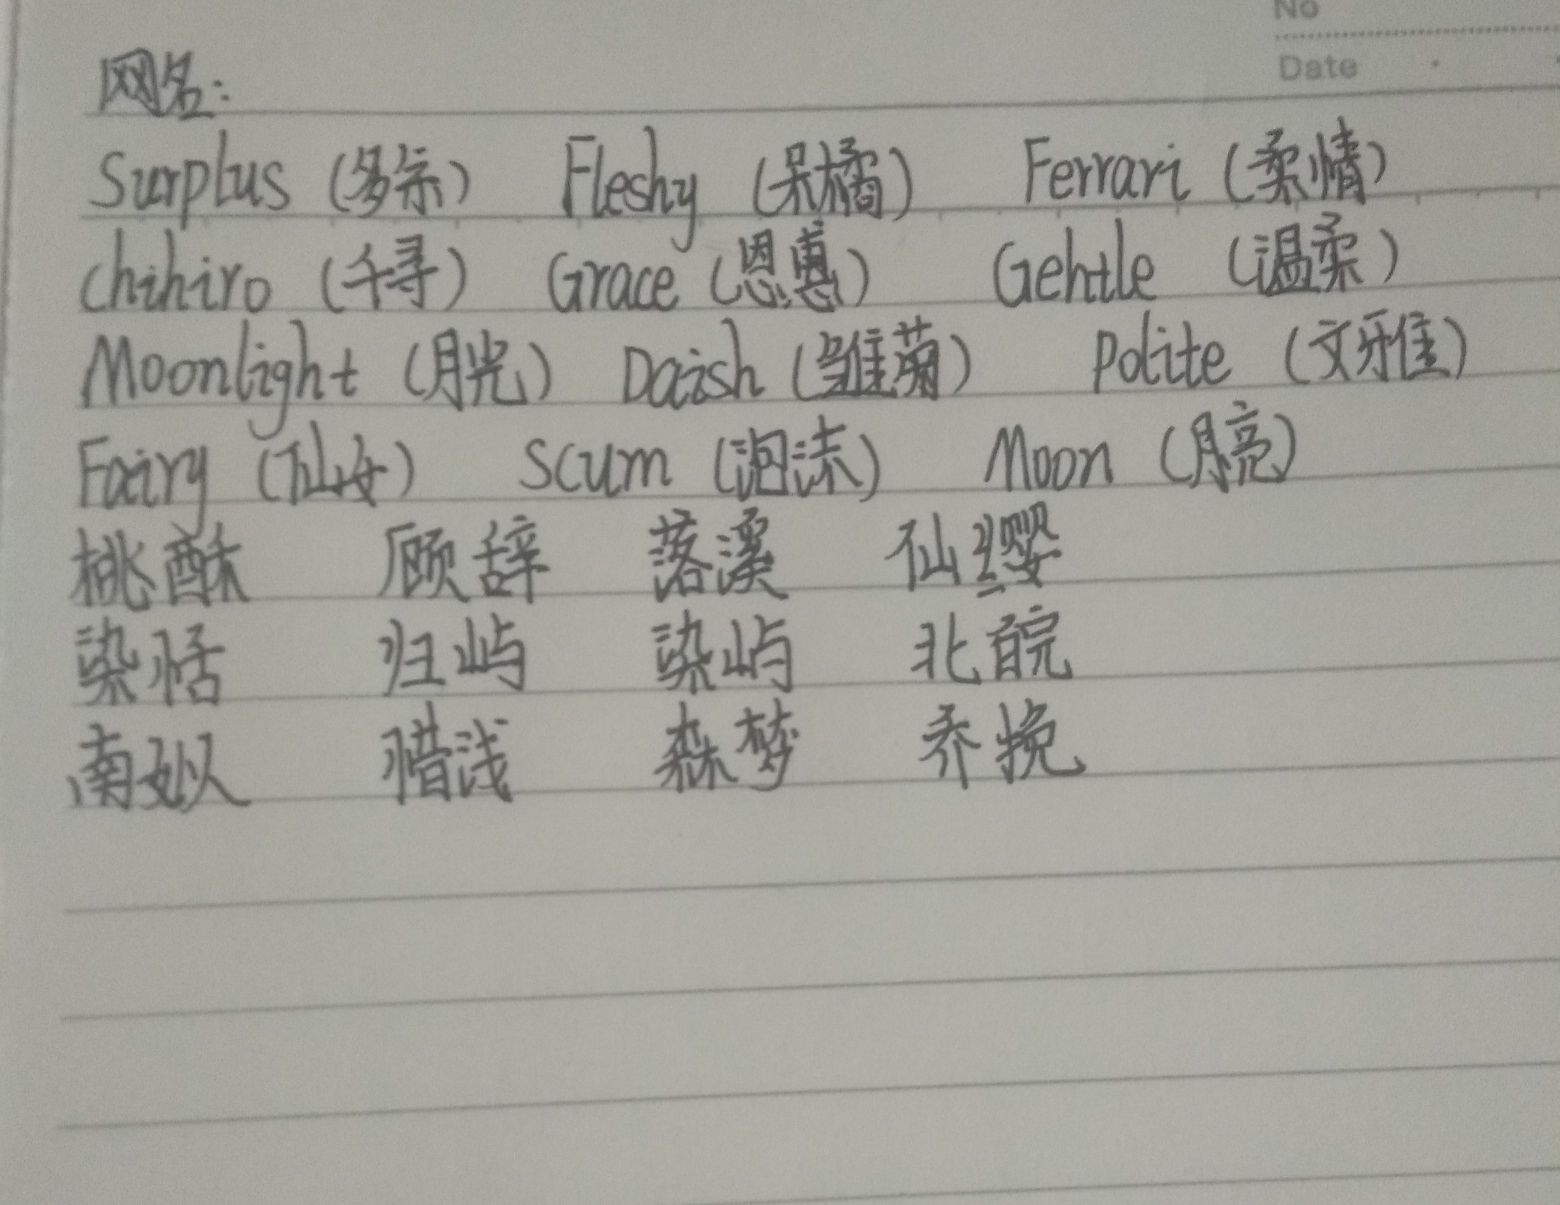 No
Date
网名:
Surplus (多余) Fleshy (呆橘) Ferrari (柔情)
Chihiro (千寻) Grace (恩惠) Gehtle (温柔)
Moonlight (月光) Daish (雏菊) Polite (文雅)
Fairy (仙女) Scum (泡沫) Moon (月亮)
桃酥 顾辞 落溪 仙缨
染恬 归屿 染屿 北皖
南姒 惜浅 森梦 乔挽